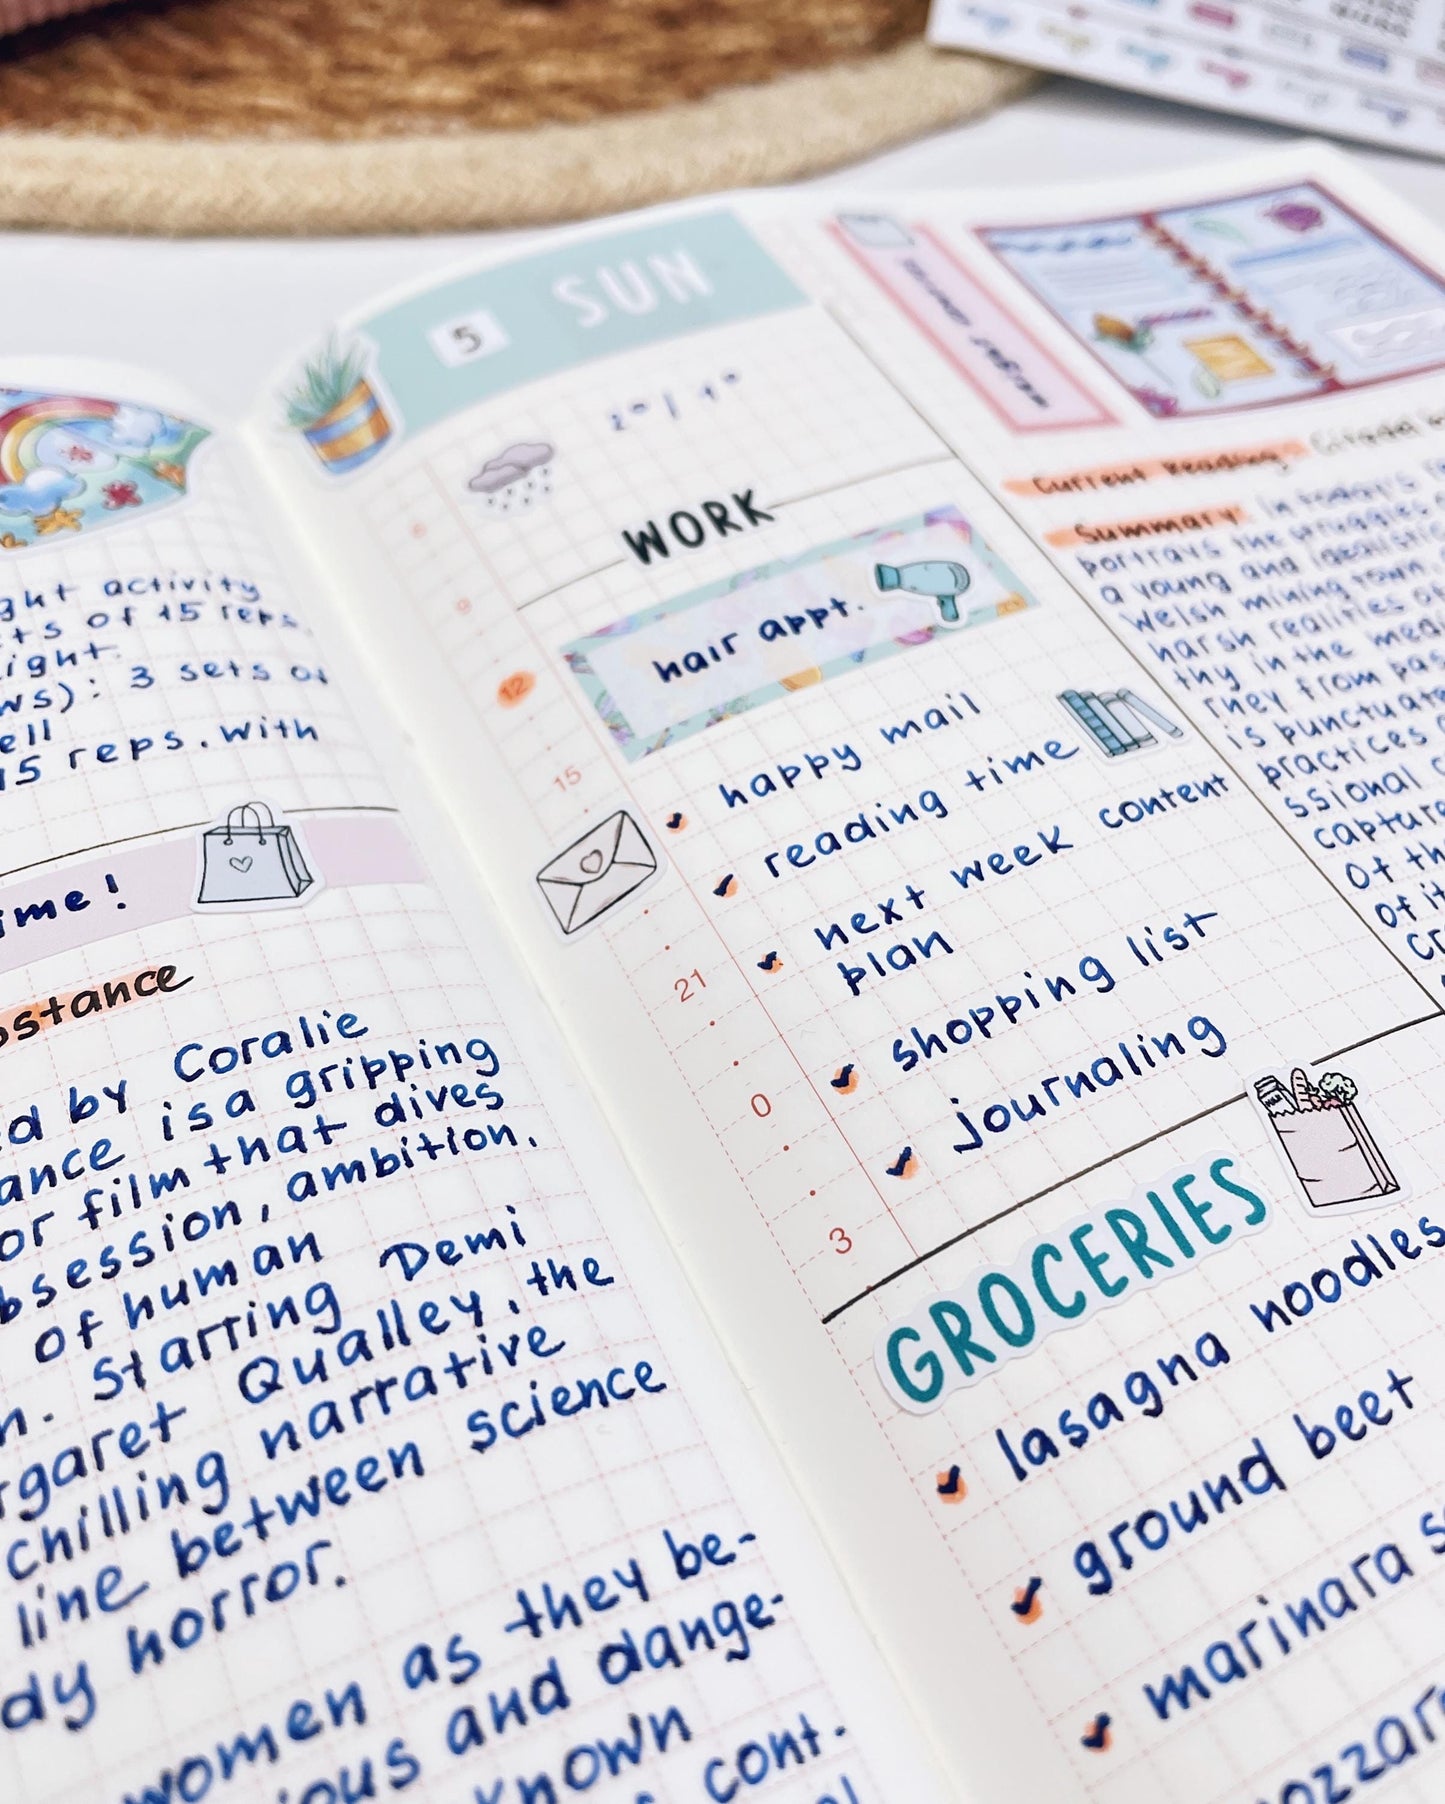 ght activity
ts of 15 reps.
ight.
ws): 3 sets of
ell
15 reps. with
ime!
bstance
ed by Coralie
ance is a gripping
or film that dives
bsession, ambition,
of human
n. Starring Demi
rgaret Qualley, the
chilling narrative
line between science
dy horror.
women as they be-
ious and dange-
known
cont.
5 SUN
WORK
hair appt.
happy mail
reading time
next week content
plan
shopping list
journaling
6
9
12
15
21
0
3
GROCERIES
lasagna noodles
ground beet
marinara s
mozzar
Current Reading: Citadel
Summary: In today's
portrays the struggles
a young and idealistic
Welsh mining town.
harsh realities
thy in the med
rney from pas
is punctuat
practices
ssional
capture
of th
of it
Cr